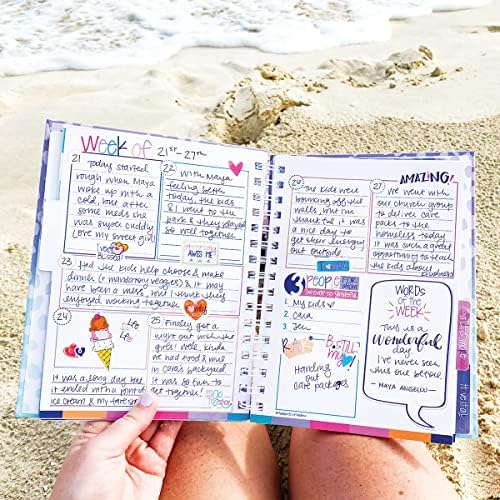 Week of 21ST - 27TH
21 Today started
rough when Maya
woke up with a
cold, but after
some meds she
was super cuddly
Love my sweet girl
22 with Maya
feeling better
today, the kids
& I went to the
park & they played
so well together
23 Had the kids help choose & make
dinner (+ mandatory veggies) & it may
have been a mess, but I think they
enjoyed working together
24
life
It was a long day but
it ended with a pint of
ice cream & my fave
25 Finally got a
night out with the
girls! Well, kinda
we had food & mus
in Cara's backyard
It was so fun to
get together!
26
The kids were
bouncing off the
walls, but I'm
thankful it was
a nice day to
get their energy
outside
AMAZING!
27 we went with
our church group
to deliver care
packs to the
homeless today
it was such a great
opportunity to teach
the kids about
kindness
3 PEOPLE
1. My kids
2. Cara
3. Jen
B. still
my
Handing out
care packages
WORDS
of the
WEEK
This is a
Wonderful
day
I've never
seen this
one before.
- MAYA ANGELOU -